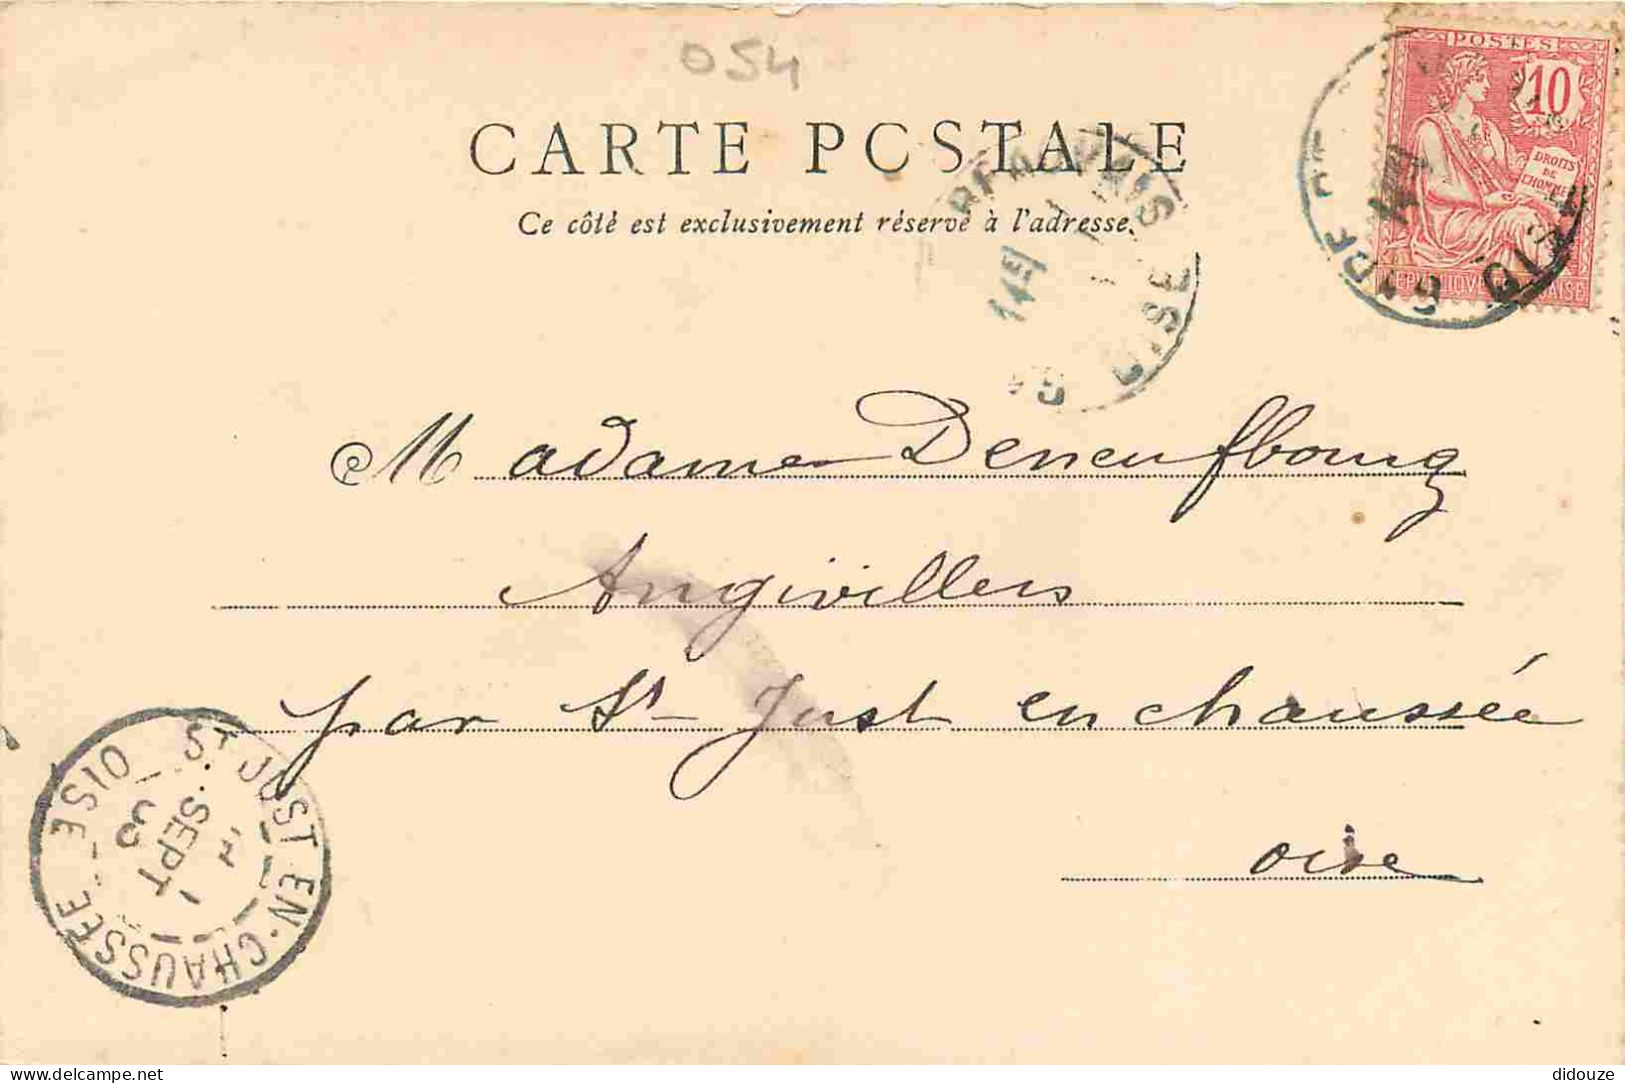 054
CARTE POSTALE
Ce côté est exclusivement réservé à l'adresse.
POSTES
10
DROITS
DE
L'HOMME
14E
OISE
Madame Deneufbourg
Angivillers
par St Just en chaussée
oise
ST JUST-EN-CHAUSSÉE - OISE
1
SEPT
03
delcampe.net
didouze